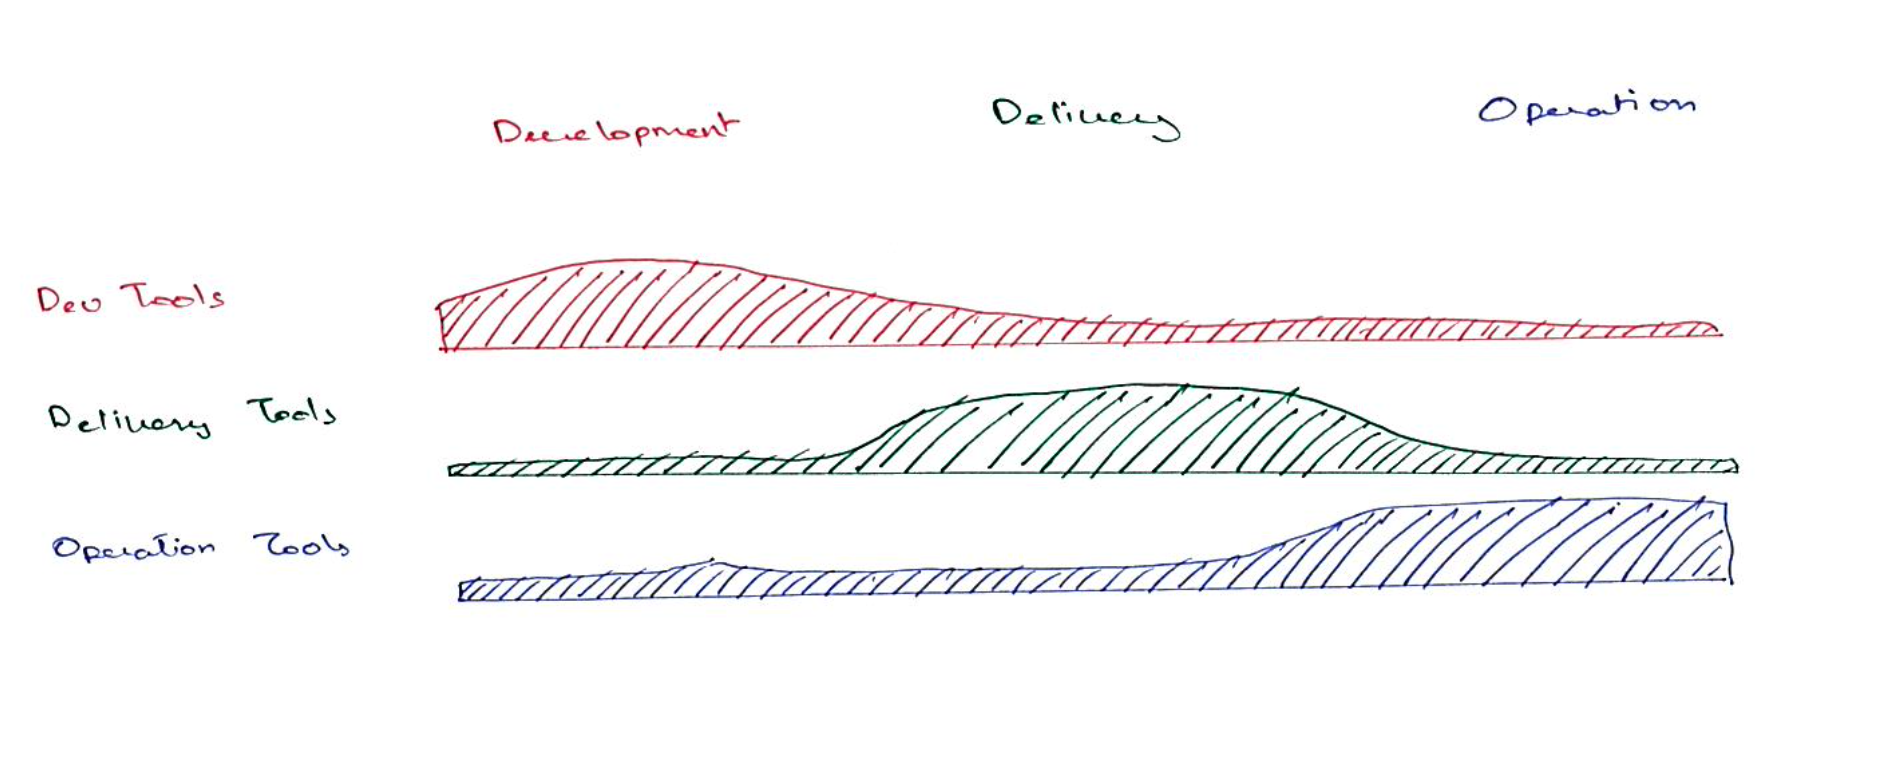 Development Delivery Operation
Dev Tools
Delivery Tools
Operation Tools